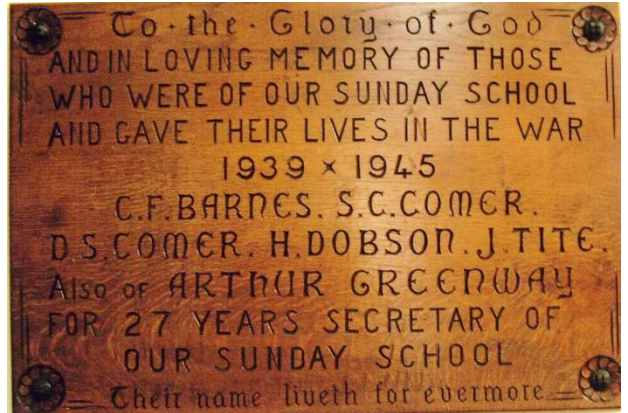 To · the · Glory · of · God
AND IN LOVING MEMORY OF THOSE
WHO WERE OF OUR SUNDAY SCHOOL
AND GAVE THEIR LIVES IN THE WAR
1939 × 1945
C.F.BARNES. S.C.COMER.
D.S.COMER. H.DOBSON. J.TITE.
Also of ARTHUR GREENWAY
FOR 27 YEARS SECRETARY OF
OUR SUNDAY SCHOOL
Their name liveth for evermore